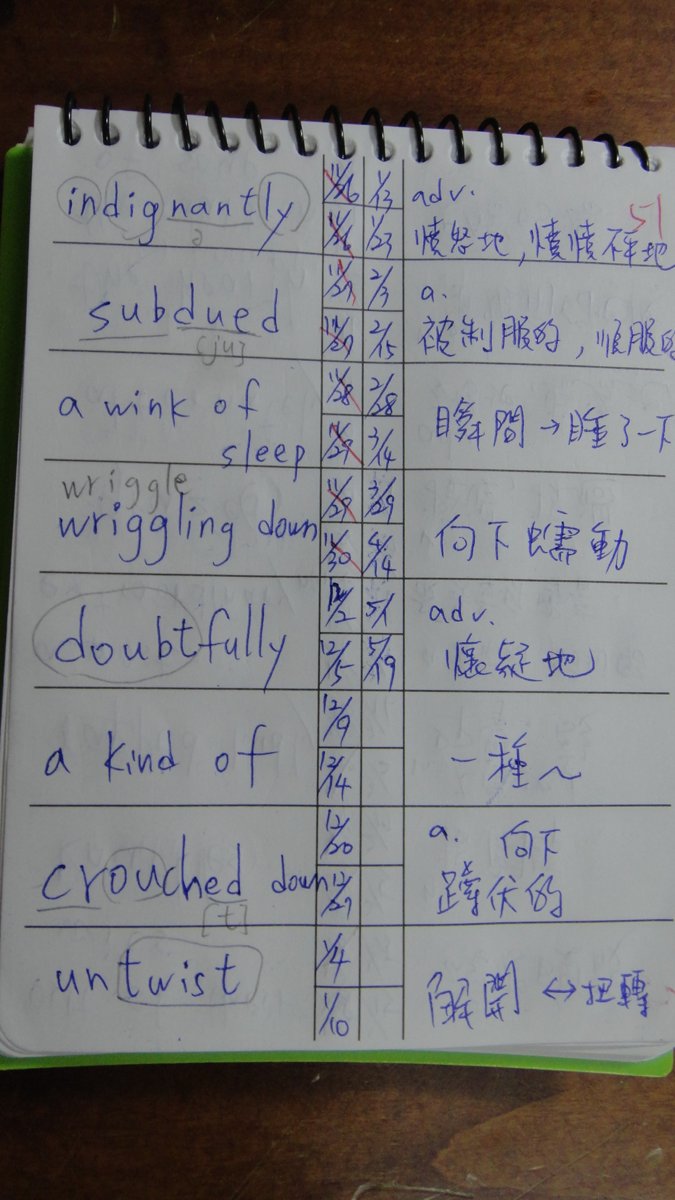 indignantly
ə
subdued
[ju]
a wink of
sleep
wriggle
wriggling down
doubtfully
a kind of
crouched down
[t]
untwist
11/26 1/13
11/26 1/23
11/27 2/3
11/27 2/15
11/28 2/28
11/29 3/14
11/29 3/29
11/30 4/14
12/2 5/1
12/5 5/19
12/9
12/14
12/20
12/27
1/4
1/10
51
adv.
憤怒地,憤憤不平地
a.
被制服的,順服的
瞬間→睡了一下
向下蠕動
adv.
懷疑地
一種~
a. 向下
蹲伏的
解開 ↔ 扭轉